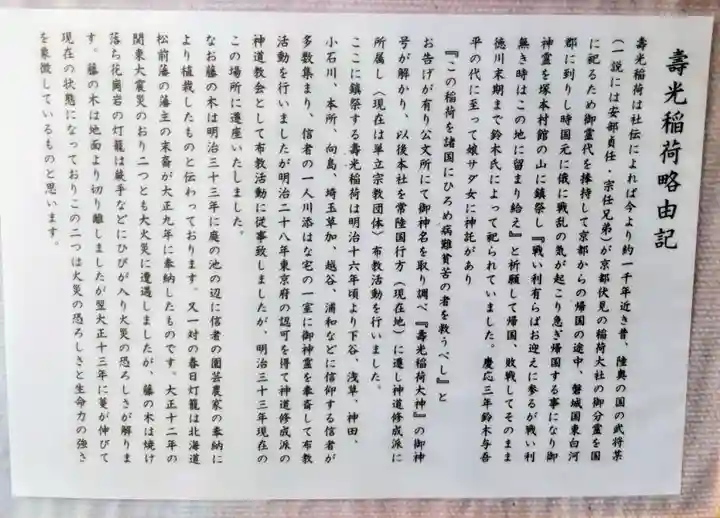 壽光稲荷略由記
壽光稲荷は社伝によれば今より約一千年近き昔、陸奥の国の武将某
(一説には安部貞任・宗任兄弟)が京都伏見の稲荷大社の御分霊を国
に祀るため御霊代を捧持して京都からの帰国の途中、磐城国東白河
郡に到りし時国元に俄に戦乱の気が起こり急ぎ帰国する事になり御
神霊を塚本村館の山に鎮祭し『戦い利有らばお迎えに参るが戦い利
無き時はこの地に留まり給え』と祈願して帰国、敗戦してそのまま
徳川末期まで鈴木氏によって祀られていました。慶応三年鈴木与吾
平の代に至って娘サダ女に神託があり
『この稲荷を諸国にひろめ病難貧苦の者を救うべし』と
お告げが有り公文所にて御神名を取り調べ『壽光稲荷大神』の御神
号が解かり、以後本社を常陸国行方(現在地)に遷し神道修成派に
所属し(現在は単立宗教団体)布教活動を行いました。
ここに鎮祭する壽光稲荷は明治十六年頃より下谷、浅草、神田、
小石川、本所、向島、埼玉草加、越谷、浦和などに信仰する信者が
多数集まり、信者の一人川添はな宅の一室に御神霊を奉斎して布教
活動を行いましたが明治二十八年東京府の認可を得て神道修成派の
神道教会として布教活動に従事致しましたが、明治三十三年現在の
この場所に遷座いたしました。
なお藤の木は明治三十三年に庭の池の辺に信者の園芸農家の奉納に
より植栽したものと伝わっております。又一対の春日灯籠は北海道
松前藩の藩主の末裔が大正九年に奉納したものです。大正十二年の
関東大震災のおり二つとも大火災に遭遇しましたが、藤の木は焼け
落ち花崗岩の灯籠は蕨手などにひびが入り火災の恐ろしさが解りま
す。藤の木は地面より切り離しましたが翌大正十三年に蔓が伸びて
現在の状態になっておりこの二つは火災の恐ろしさと生命力の強さ
を象徴しているものと思います。